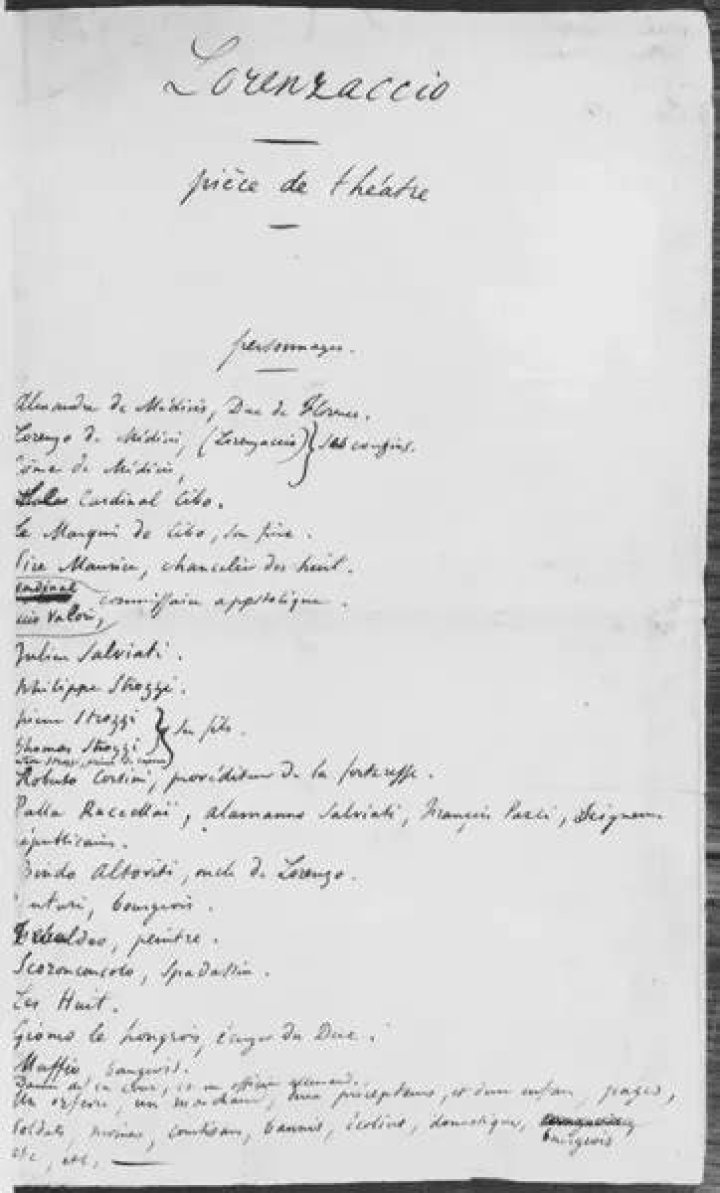 Lorenzaccio
pièce de théatre
personnages.
Alexandre de Médicis, Duc de Florence.
Lorenzo de Médicis, (Lorenzaccio) } ses cousins.
Côme de Médicis,
Cardinal Cibo.
Le Marquis de Cibo, son frère.
Sire Maurice, chancelier des huit.
cardinal
Valori, commissaire apostolique.
Julien Salviati.
Philippe Strozzi.
pierre Strozzi } ses fils.
Thomas Strozzi
Roberto Corsini, provéditeur de la forteresse.
Palla Ruccellaï, alamanno Salviati, François Pazzi, Seigneurs
républicains.
Bindo Altoviti, oncle de Lorenzo.
Venturi, bourgeois.
Tebaldeo, peintre.
Scoronconcolo, Spadassin.
Les Huit.
Giomo le hongrois, écuyer du Duc.
Maffio, bourgeois.
Dames de la cour, et un officier allemand.
Un orfèvre, un marchand, deux précepteurs, et deux enfans, pages,
Soldats, moines, courtisans, bannis, écoliers, domestiques,
bourgeois
etc, etc,